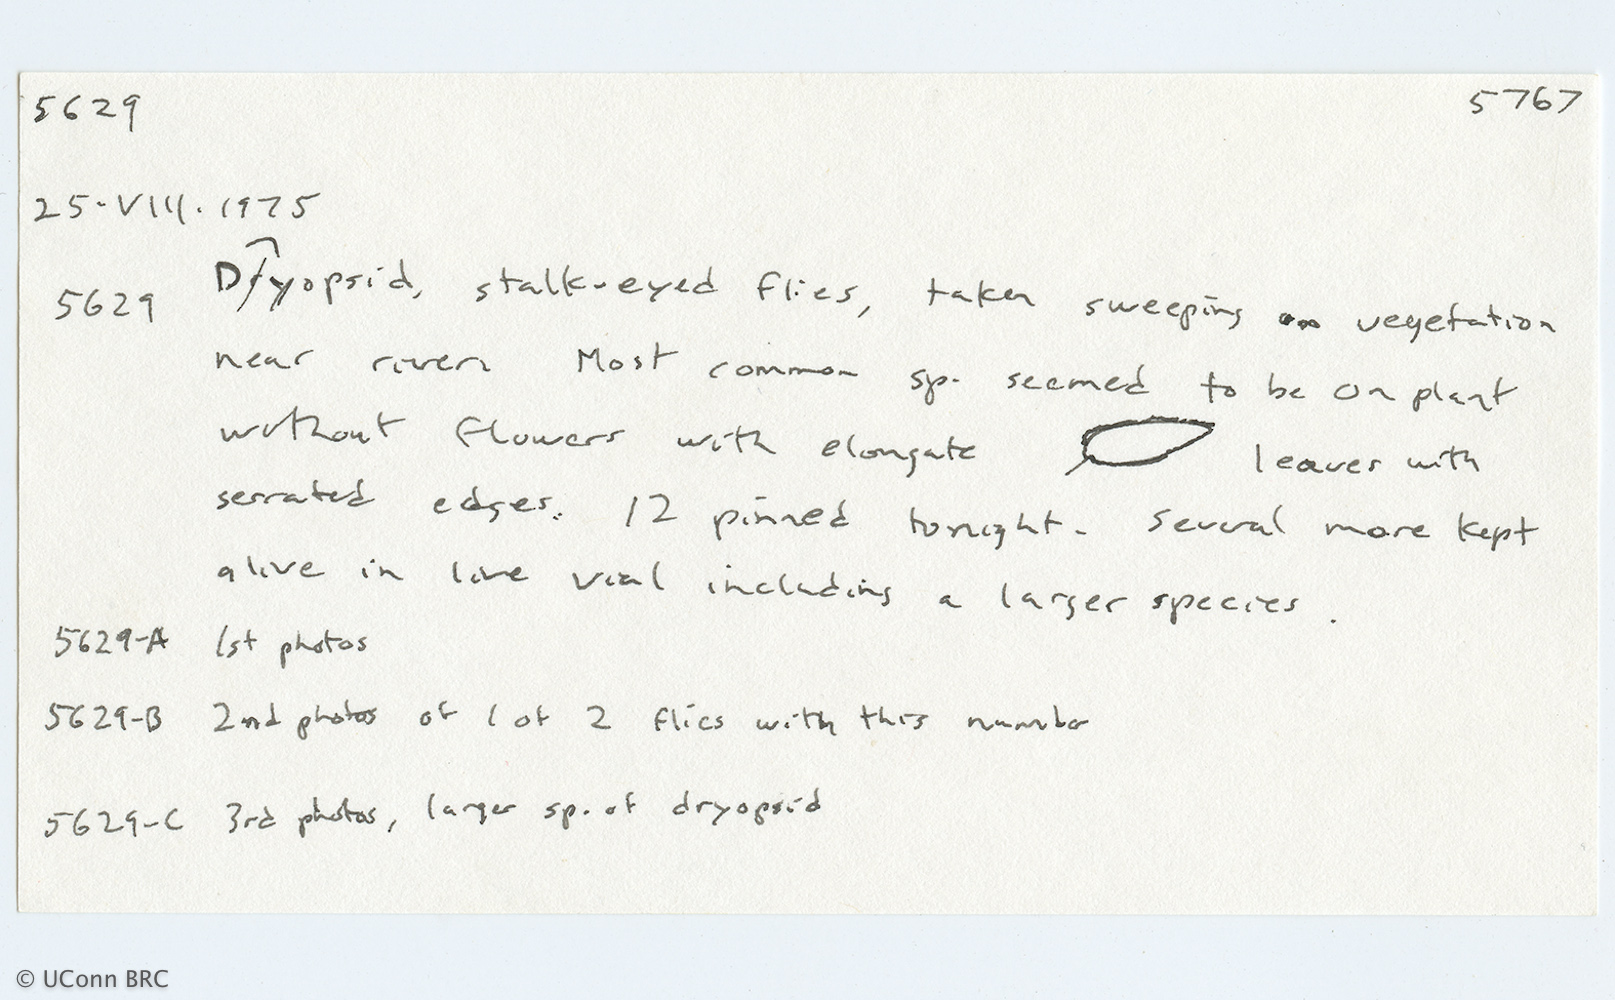 5629 5767
25-VIII.1975
5629 Dryopsid, stalk-eyed flies, taken sweeping on vegetation
near river. Most common sp. seemed to be on plant
without flowers with elongate leaves with
serrated edges. 12 pinned tonight. Several more kept
alive in live vial including a larger species.
5629-A 1st photos
5629-B 2nd photos of 1 of 2 flies with this number
5629-C 3rd photos, larger sp. of dryopsid
© UConn BRC